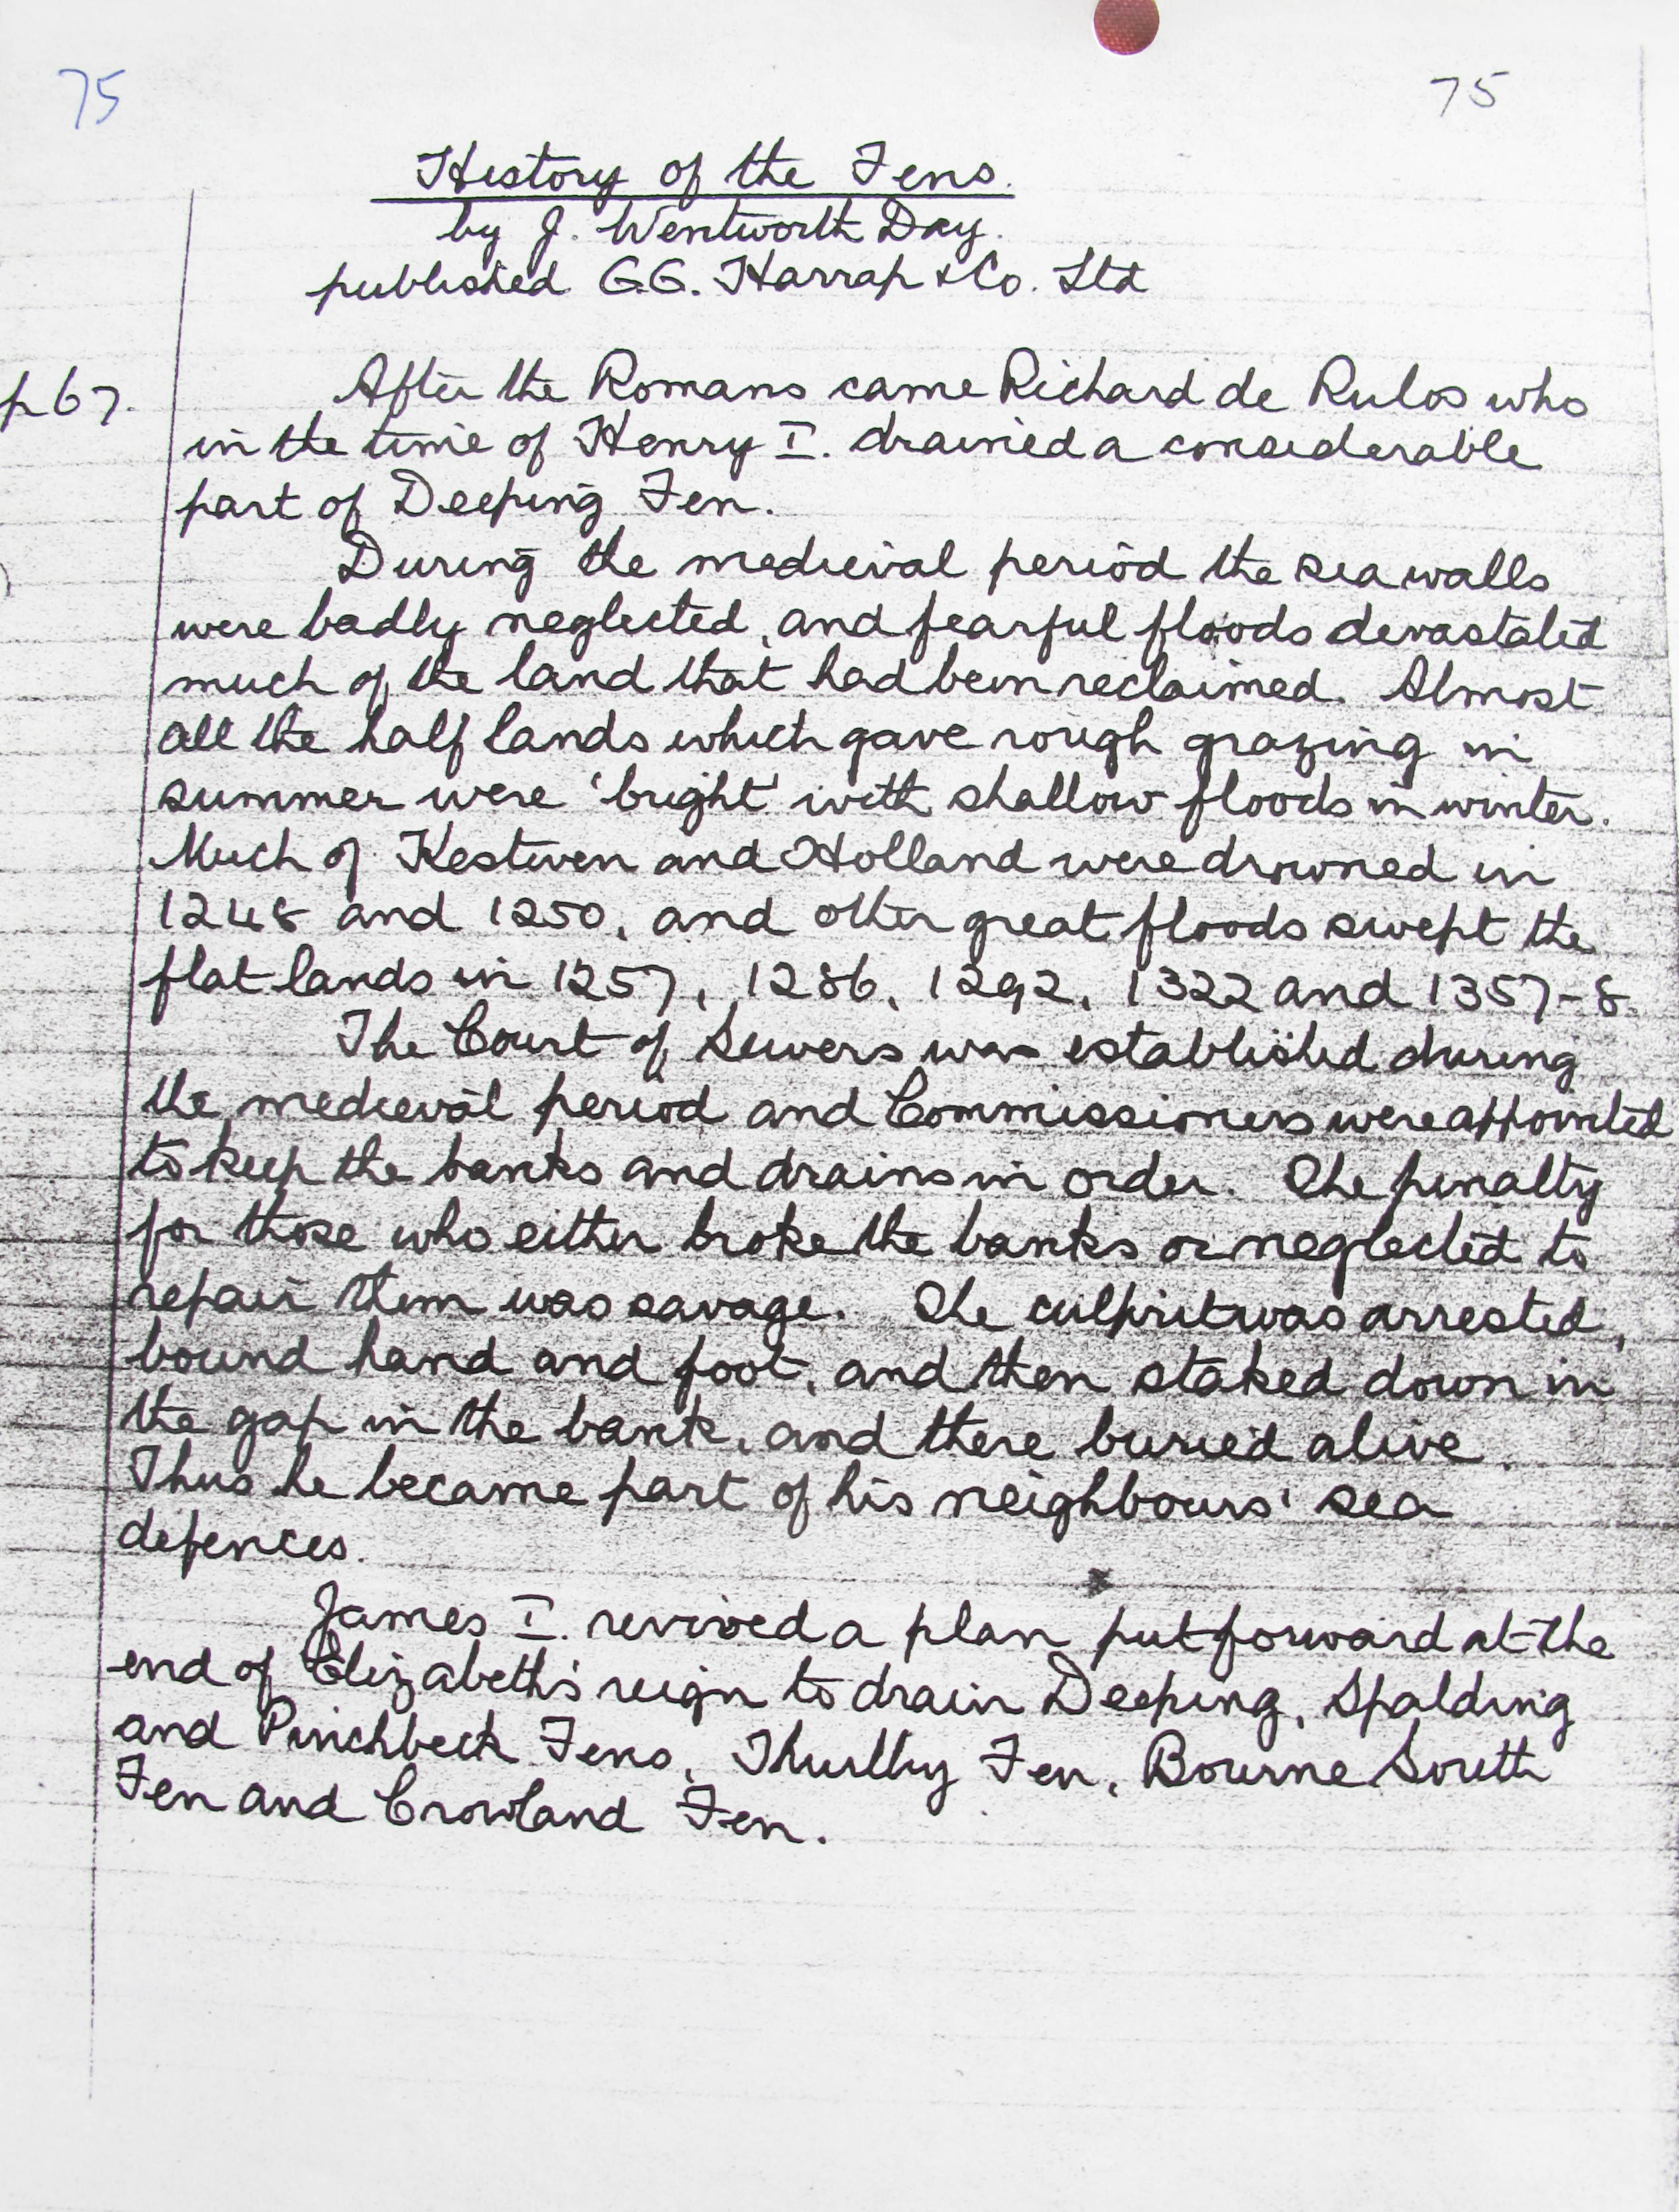 75
75
History of the Fens.
by J. Wentworth Day.
published G.G. Harrap & Co. Ltd
p 67.
After the Romans came Richard de Rulos who
in the time of Henry I. drained a considerable
part of Deeping Fen.
During the medieval period the sea walls
were badly neglected, and fearful floods devastated
much of the land that had been reclaimed. Almost
all the half lands which gave rough grazing in
summer were 'bright' with shallow floods in winter.
Much of Kesteven and Holland were drowned in
1248 and 1250, and other great floods swept the
flat lands in 1257, 1286, 1292, 1322 and 1357-8.
The Court of Sewers was established during
the medieval period and Commissioners were appointed
to keep the banks and drains in order. The penalty
for those who either broke the banks or neglected to
repair them was savage. The culprit was arrested,
bound hand and foot, and then staked down in
the gap in the bank, and there buried alive.
Thus he became part of his neighbours' sea
defences.
James I. revived a plan put forward at the
end of Elizabeth's reign to drain Deeping, Spalding
and Pinchbeck Fens, Thurlby Fen, Bourne South
Fen and Crowland Fen.